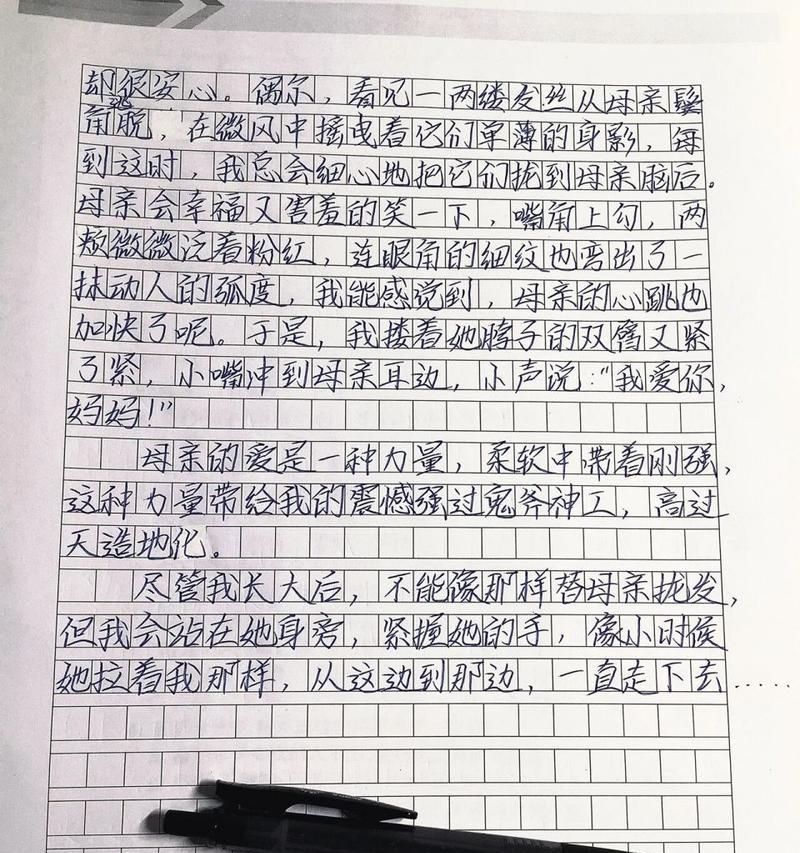 却很安心。偶尔，看见一两缕发丝从母亲鬓
角逃脱，在微风中摇曳着它们单薄的身影，每
到这时，我总会细心地把它们拢到母亲脑后。
母亲会幸福又害羞的笑一下，嘴角上勾，两
颊微微泛着粉红，连眼角的细纹也弯出了一
抹动人的弧度，我能感觉到，母亲的心跳也
加快了呢。于是，我搂着她脖子的双臂又紧
了紧，小嘴冲到母亲耳边，小声说："我爱你，
妈妈！"
母亲的爱是一种力量，柔软中带着刚强，
这种力量带给我的震憾强过鬼斧神工，高过
天造地化。
尽管我长大后，不能像那样替母亲拢发，
但我会站在她身旁，紧握她的手，像小时候
她拉着我那样，从这边到那边，一直走下去……